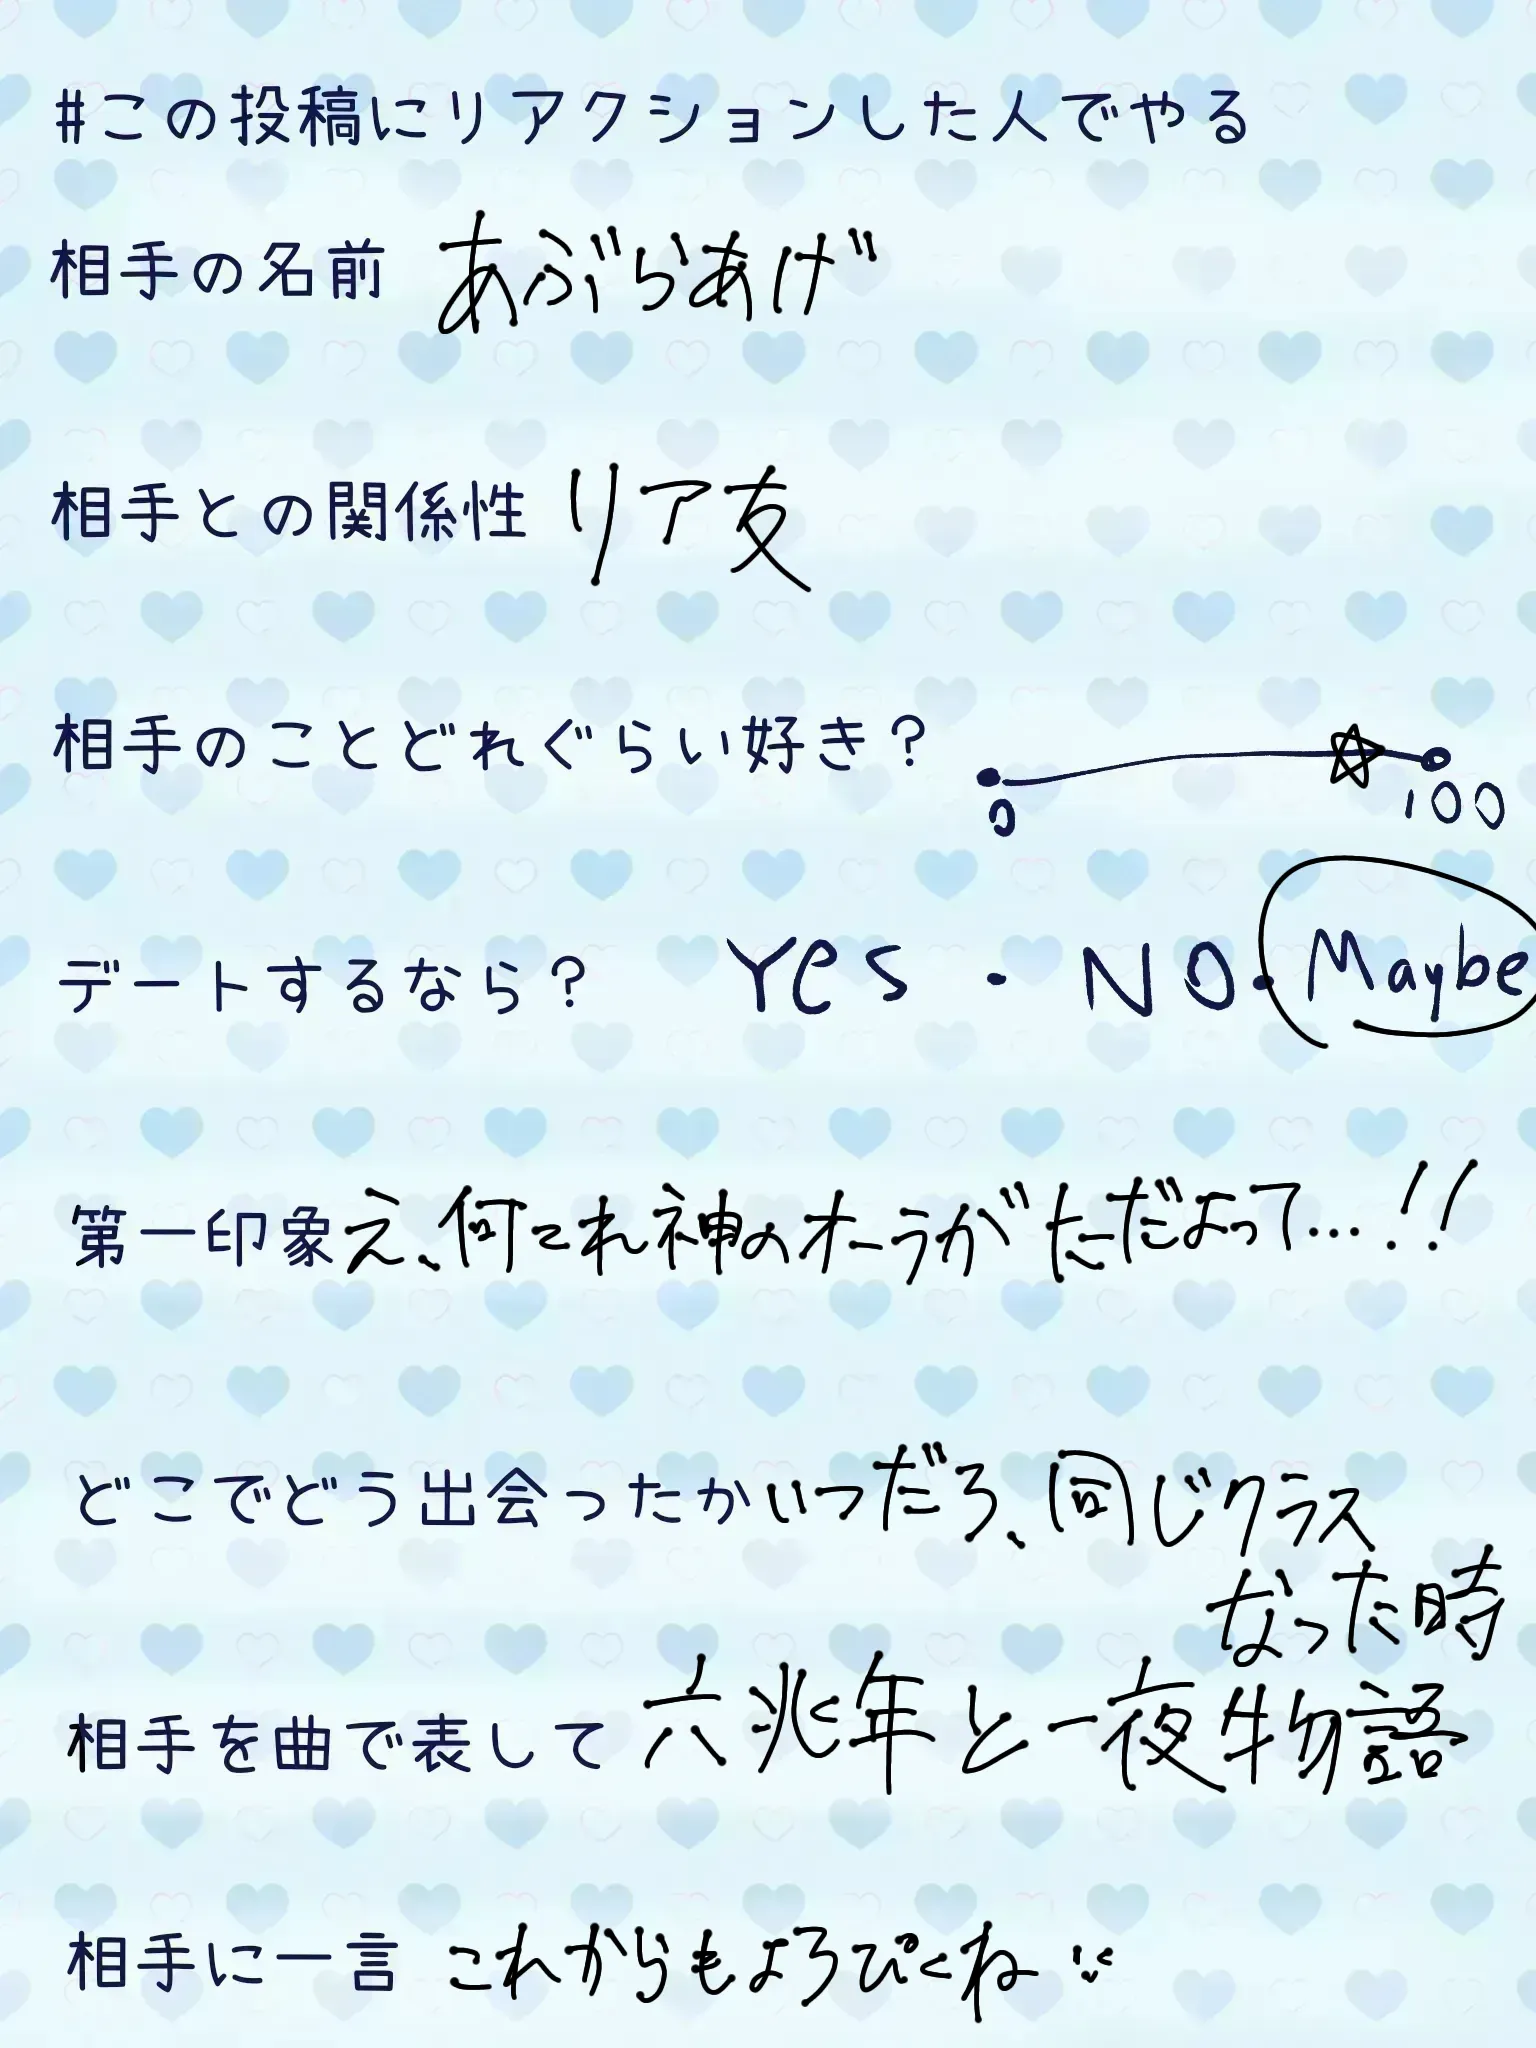 #この投稿にリアクションした人でやる
相手の名前 あぶらあげ
相手との関係性 リア友
相手のことどれぐらい好き?
0 100
デートするなら? Yes・NO・Maybe
第一印象 え、何これ神のオーラがただよって…!!
どこでどう出会ったか いつだろ、同じクラス
なった時
相手を曲で表して 六兆年と一夜物語
相手に一言 これからもよろぴくね